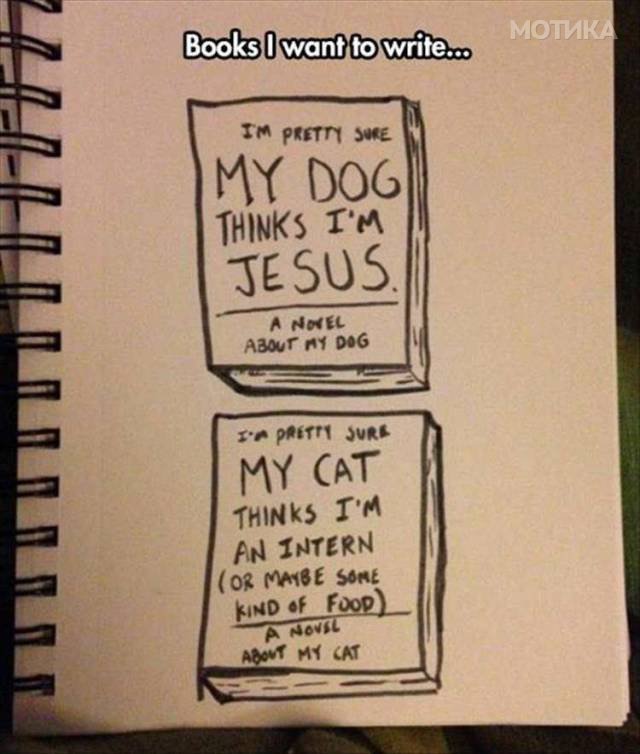 Books I want to write...
МОТИКА
I'M PRETTY SURE
MY DOG
THINKS I'M
JESUS.
A NOVEL
ABOUT MY DOG
I'M PRETTY SURE
MY CAT
THINKS I'M
AN INTERN
(OR MAYBE SOME
KIND OF FOOD)
A NOVEL
ABOUT MY CAT